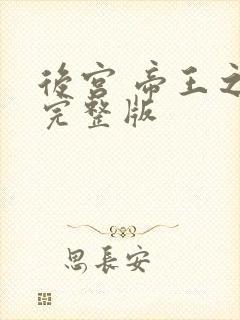 後宮 帝王之
完整版
思長安